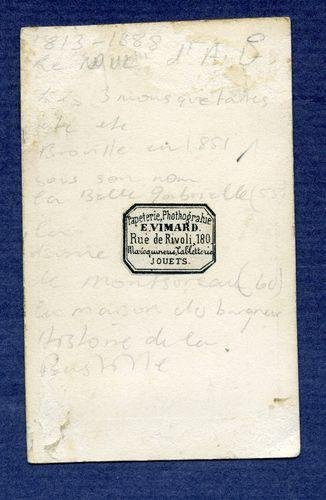 1813-1888
Le "NOUE" d'A.
Les 3 mousquetaires
etc etc
Brouille en 1851
sous son nom
la Belle Gabrielle (55)
Papeterie, Photographie
E.VIMARD.
Rue de Rivoli, 180.
Maroquinerie, Tabletterie
JOUETS.
dame
de Monsoreau (60)
La maison du baigneur
Histoire de la
Bastille